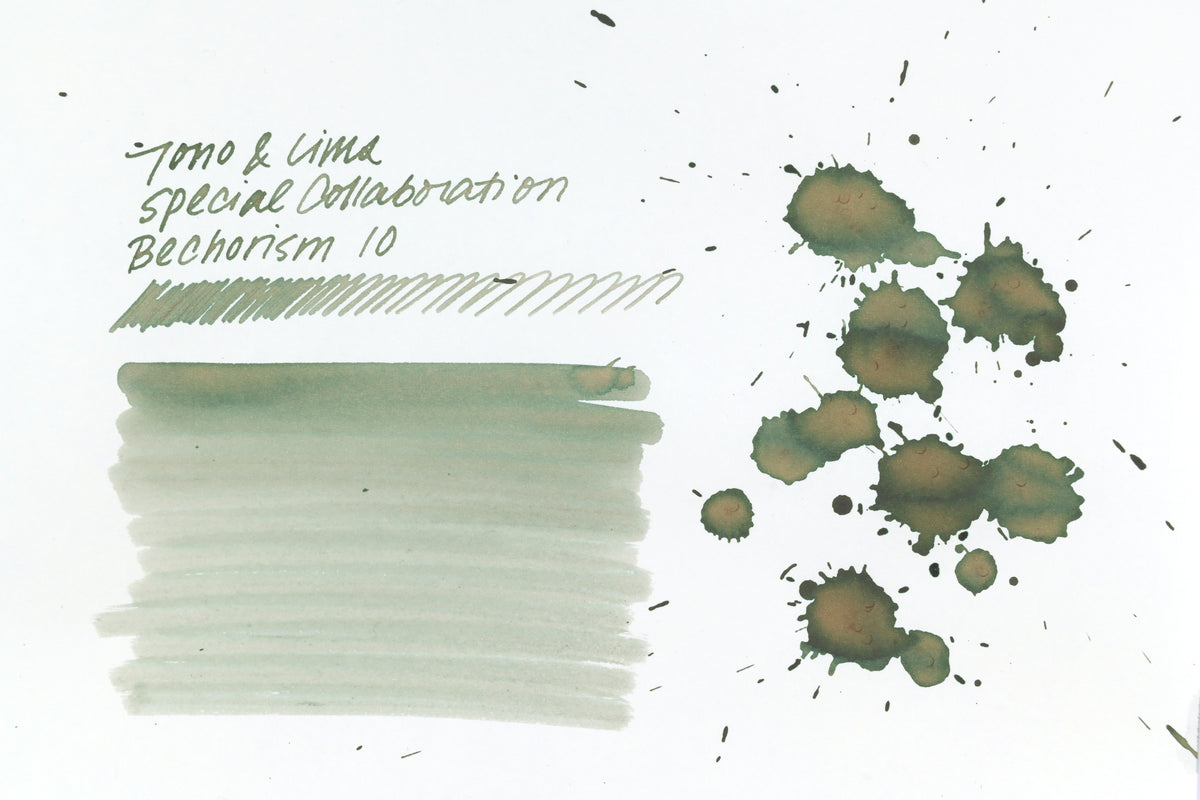 Tono & Lima
Special Collaboration
Bechorism 10